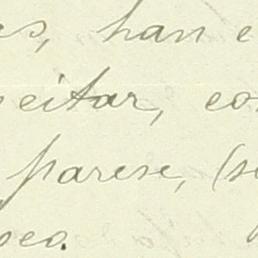 es, han e
eitar, co
parese, (s
seo.